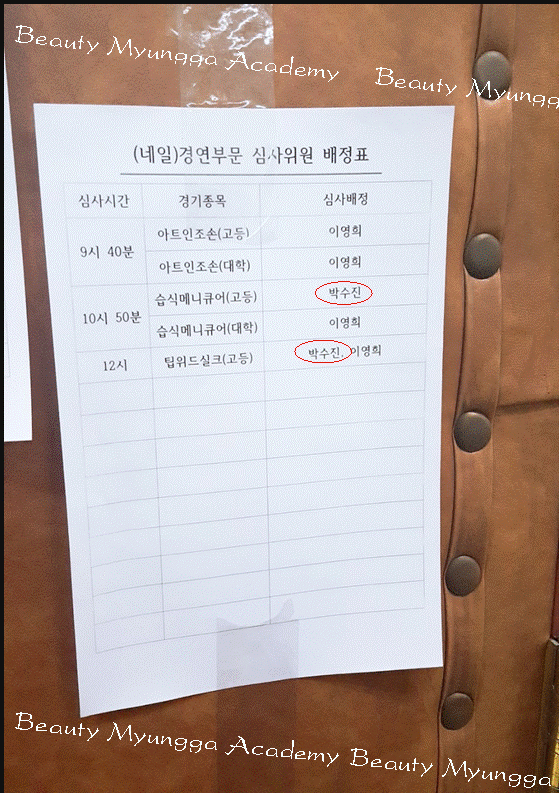 Beauty Myungga Academy Beauty Myungga
(네일)경연부문 심사위원 배정표
심사시간 경기종목 심사배정
9시 40분 아트인조손(고등) 이영희
아트인조손(대학) 이영희
10시 50분 습식메니큐어(고등) 박수진
습식메니큐어(대학) 이영희
12시 팁위드실크(고등) 박수진, 이영희
Beauty Myungga Academy Beauty Myungga